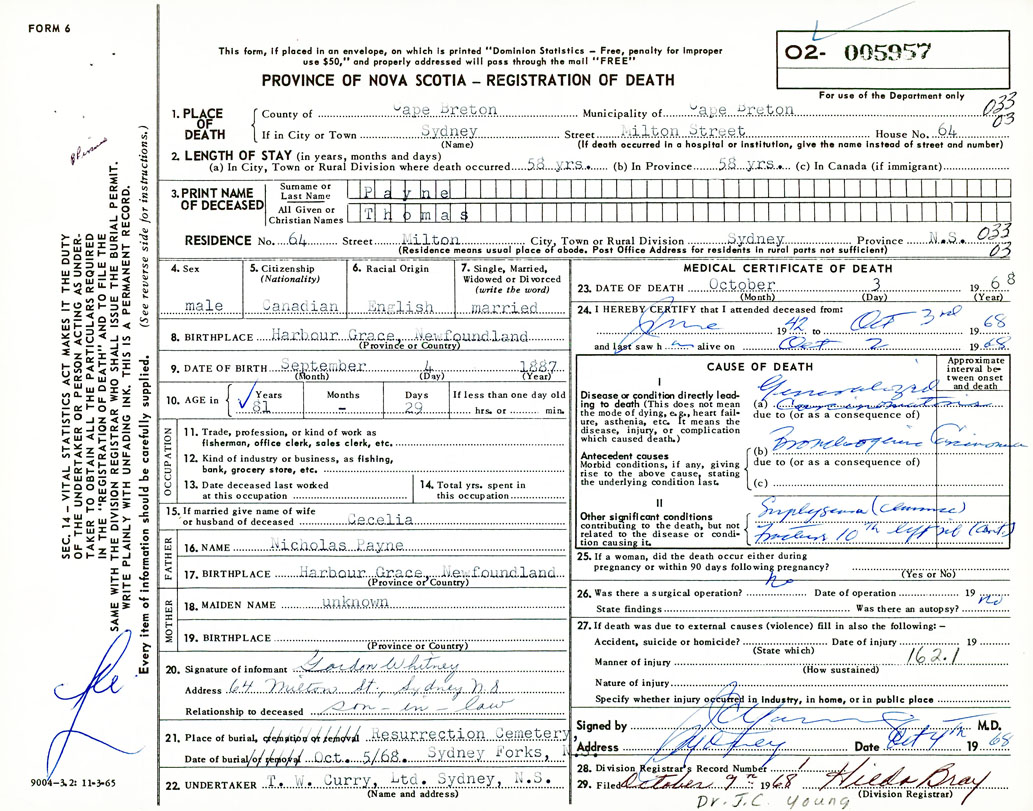 FORM 6
This form, if placed in an envelope, on which is printed "Dominion Statistics – Free, penalty for improper
use $50," and properly addressed will pass through the mail "FREE"
PROVINCE OF NOVA SCOTIA – REGISTRATION OF DEATH
02- 005957
For use of the Department only
033
03
1. PLACE OF DEATH
County of Cape Breton Municipality of Cape Breton
If in City or Town Sydney Street Milton Street House No. 64
(Name) (If death occurred in a hospital or institution, give the name instead of street and number)
2. LENGTH OF STAY (in years, months and days)
(a) In City, Town or Rural Division where death occurred 58 yrs. (b) In Province 58 yrs. (c) In Canada (if immigrant)
3. PRINT NAME OF DECEASED
Surname or Last Name Payne
All Given or Christian Names Thomas
RESIDENCE No. 64 Street Milton City, Town or Rural Division Sydney Province N.S. 033
(Residence means usual place of abode. Post Office Address for residents in rural parts not sufficient) 03
4. Sex
male
5. Citizenship
(Nationality)
Canadian
6. Racial Origin
English
7. Single, Married,
Widowed or Divorced
(write the word)
married
8. BIRTHPLACE Harbour Grace, Newfoundland
(Province or Country)
9. DATE OF BIRTH September 4 1887
(Month) (Day) (Year)
10. AGE in
Years Months Days If less than one day old
81 – 29 hrs. or min.
OCCUPATION
11. Trade, profession, or kind of work as
fisherman, office clerk, sales clerk, etc.
12. Kind of industry or business, as fishing,
bank, grocery store, etc.
13. Date deceased last worked
at this occupation
14. Total yrs. spent in
this occupation
15. If married give name of wife
or husband of deceased Cecelia
FATHER
16. NAME Nicholas Payne
17. BIRTHPLACE Harbour Grace, Newfoundland
(Province or Country)
MOTHER
18. MAIDEN NAME unknown
19. BIRTHPLACE
(Province or Country)
20. Signature of informant Gordon Whitney
Address 64 Milton St., Sydney N.S
Relationship to deceased son-in-law
21. Place of burial, cremation or removal Resurrection Cemetery,
Date of burial/or removal Oct. 5/68. Sydney Forks, N.S.
22. UNDERTAKER T. W. Curry, Ltd. Sydney, N.S.
(Name and address)
MEDICAL CERTIFICATE OF DEATH
23. DATE OF DEATH October 3 1968
(Month) (Day) (Year)
24. I HEREBY CERTIFY that I attended deceased from:
June 1942 to Oct 3rd 1968
and last saw h m alive on Oct 2 1968
CAUSE OF DEATH
Approximate interval between onset and death
I
Disease or condition directly leading to death (This does not mean
the mode of dying, e.g., heart failure, asthenia, etc. It means the
disease, injury, or complication
which caused death.)
Generalized
(a) Carcinomatosis
due to (or as a consequence of)
Antecedent causes
Morbid conditions, if any, giving
rise to the above cause, stating
the underlying condition last.
(b) Bronchogenic Carcinoma
due to (or as a consequence of)
(c)
II
Other significant conditions
contributing to the death, but not
related to the disease or condition causing it.
Emphysema (Chronic)
Fracture 10th left rib
25. If a woman, did the death occur either during
pregnancy or within 90 days following pregnancy?
(Yes or No)
26. Was there a surgical operation? no Date of operation 19
State findings Was there an autopsy? no
27. If death was due to external causes (violence) fill in also the following: –
Accident, suicide or homicide? Date of injury 19
(State which)
162.1
Manner of injury
(How sustained)
Nature of injury
Specify whether injury occurred in Industry, in home, or in public place
Signed by J C Young M.D.
Address Sydney Date Oct 4th 1968
28. Division Registrar's Record Number
29. Filed October 9th 1968 Hilda Bray
(Division Registrar)
Dr. J.C. Young
SEC. 14 – VITAL STATISTICS ACT MAKES IT THE DUTY
OF THE UNDERTAKER OR PERSON ACTING AS UNDER-
TAKER TO OBTAIN ALL THE PARTICULARS REQUIRED
IN THE "REGISTRATION OF DEATH" AND TO FILE THE
SAME WITH THE DIVISION REGISTRAR WHO SHALL ISSUE THE BURIAL PERMIT.
WRITE PLAINLY WITH UNFADING INK. THIS IS A PERMANENT RECORD.
Every item of information should be carefully supplied. (See reverse side for instructions.)
9004–3.2: 11-3-65